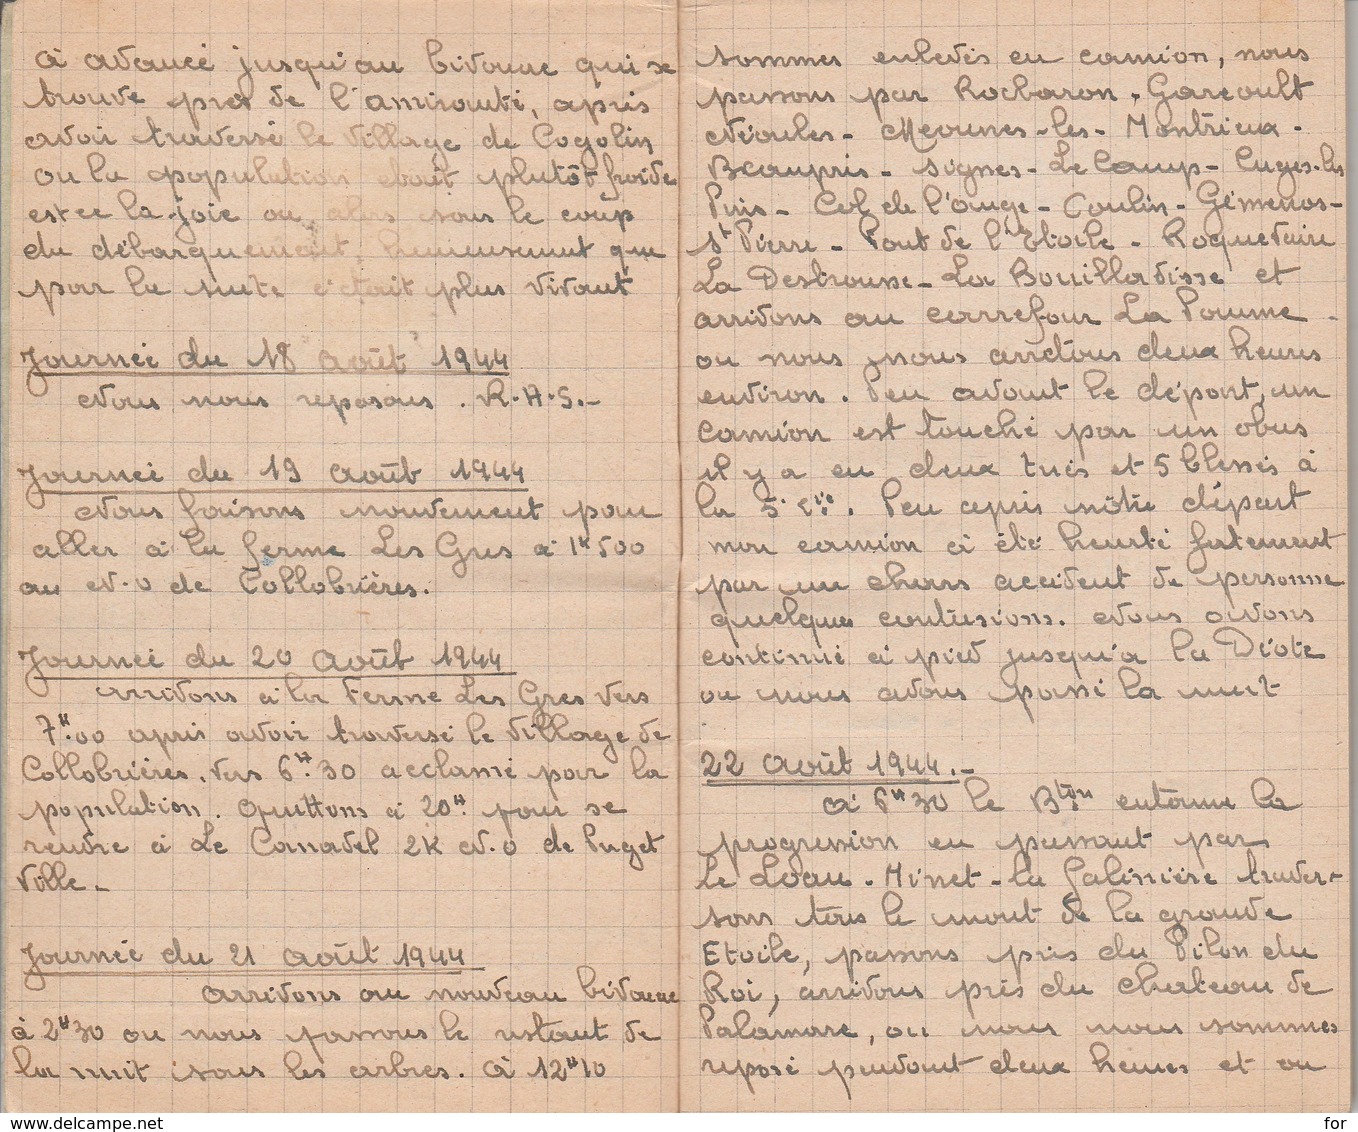 à avancé jusqu'au bivouac qui se
trouve pres de l'amirauté, apris
avoir traversé le village de Cogolin
ou la population était plutôt froide
est ce la joie ou alors sous le coup
du débarquement, heureusement que
par la suite c'était plus vivant
Journeé du 18 août 1944
Nous nous reposons. R.A.S.-
Journeé du 19 août 1944
Nous faisons mouvement pour
aller à la ferme Les Gres à 1K500
au N.O de Collobrières.
Journeé du 20 août 1944
arrivons à la Ferme Les Gres vers
7H.00 apris avoir traversé le village de
Collobrières. vers 6H.30 acclamé par la
population. Quittons à 20H. pour se
rendre à Le Canadel 2K N.O de Puget
Ville.-
Journeé du 21 août 1944
arrivons au nouveau bivouac
à 2H30 ou nous passons le restant de
la nuit sous les arbres. à 12H10
sommes enlevés en camion, nous
passons par Rocbaron - Gareoult
Néoules - Meounes-les-Montrieux -
Beaupris - signes - Le Camp - Cuges-les
Puis - Col de l'ange - Coulin - Gémenos -
St Pierre - Pont de l'Etoile - Roquevaire
La Destrousse - La Bouilladisse et
arrivons au carrefour La Pomme -
ou nous nous arretons deux heures
environ. Peu avant le départ, un
camion est touché par un obus
il y a eu deux tués et 5 blessés à
la 5e Cie. Peu apris nôtre départ
mon camion a été heurté fortement
par un chars accident de personne
quelques contusions. Nous avons
continué à pied jusqu'a la Diote
ou nous avons passé la nuit
22 août 1944.-
à 6H30 le Bton entame la
progression en passant par
Le Loau - Minet - la Galinière traver-
sons tous le mont de la grande
Etoile, passons pris du Pilon du
Roi, arrivons près du chateau de
Palamare, ou nous nous sommes
reposé pendant deux heures et ou
www.delcampe.net
for